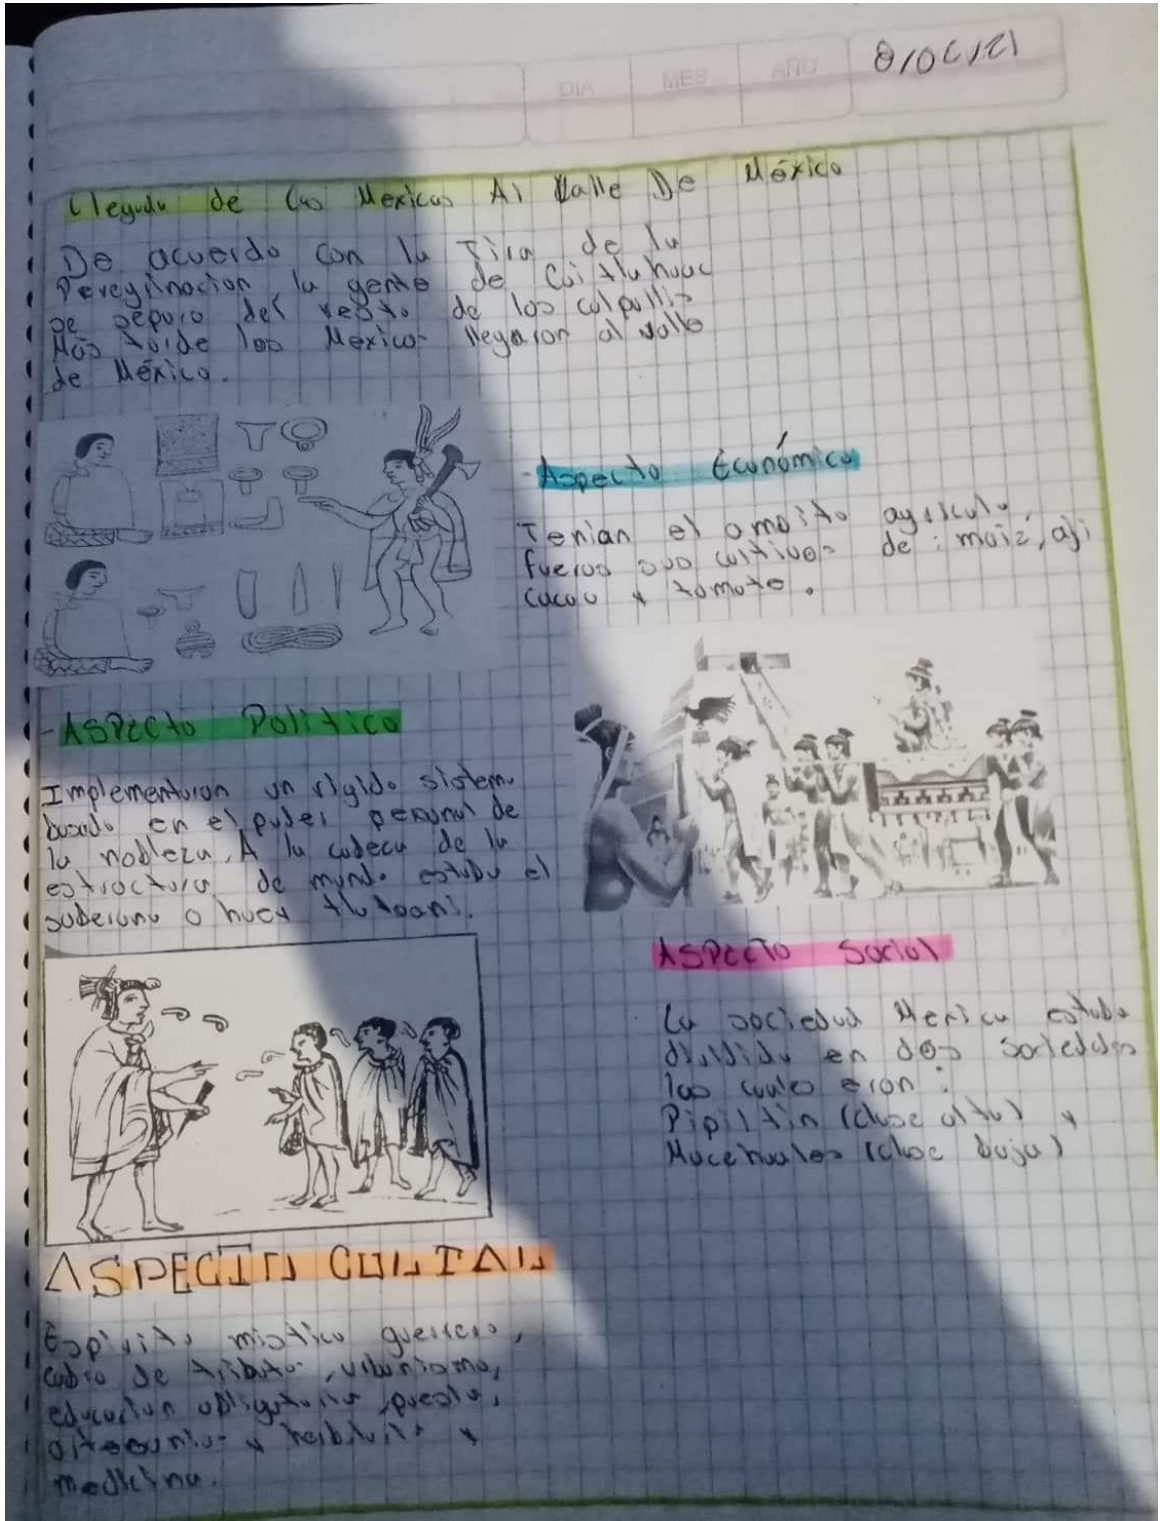 DIA MES AÑO 8/06/21
Llegada de los Mexicas Al Valle De México
De acuerdo con la Tira de la
Peregrinacion, la gente de Cuitlahuac
se separo del resto de los calpullis
Más tarde los Mexicas llegaron al valle
de México.
- Aspecto Económico
Tenian el ambito agricula,
fueron sus cultivos de : maiz, aji
cacao y tomate.
- Aspecto Politico
Implementaron un rigido sistema
basado en el poder personal de
la nobleza, A la cabeca de la
estructura de mando estaba el
soberano o huey tlatoani.
Aspecto Social
La sociedad Mexica estaba
dividida en dos sociedades
las cuales eran :
Pipiltin (clase alta) y
Macehuales (clase baja)
ASPECTO CULTAL
Espiritu mistico guerrero,
cobro de tributo, urbanismo,
educacion obligatoria, poesia,
artesanias y herbolaria y
medicina.